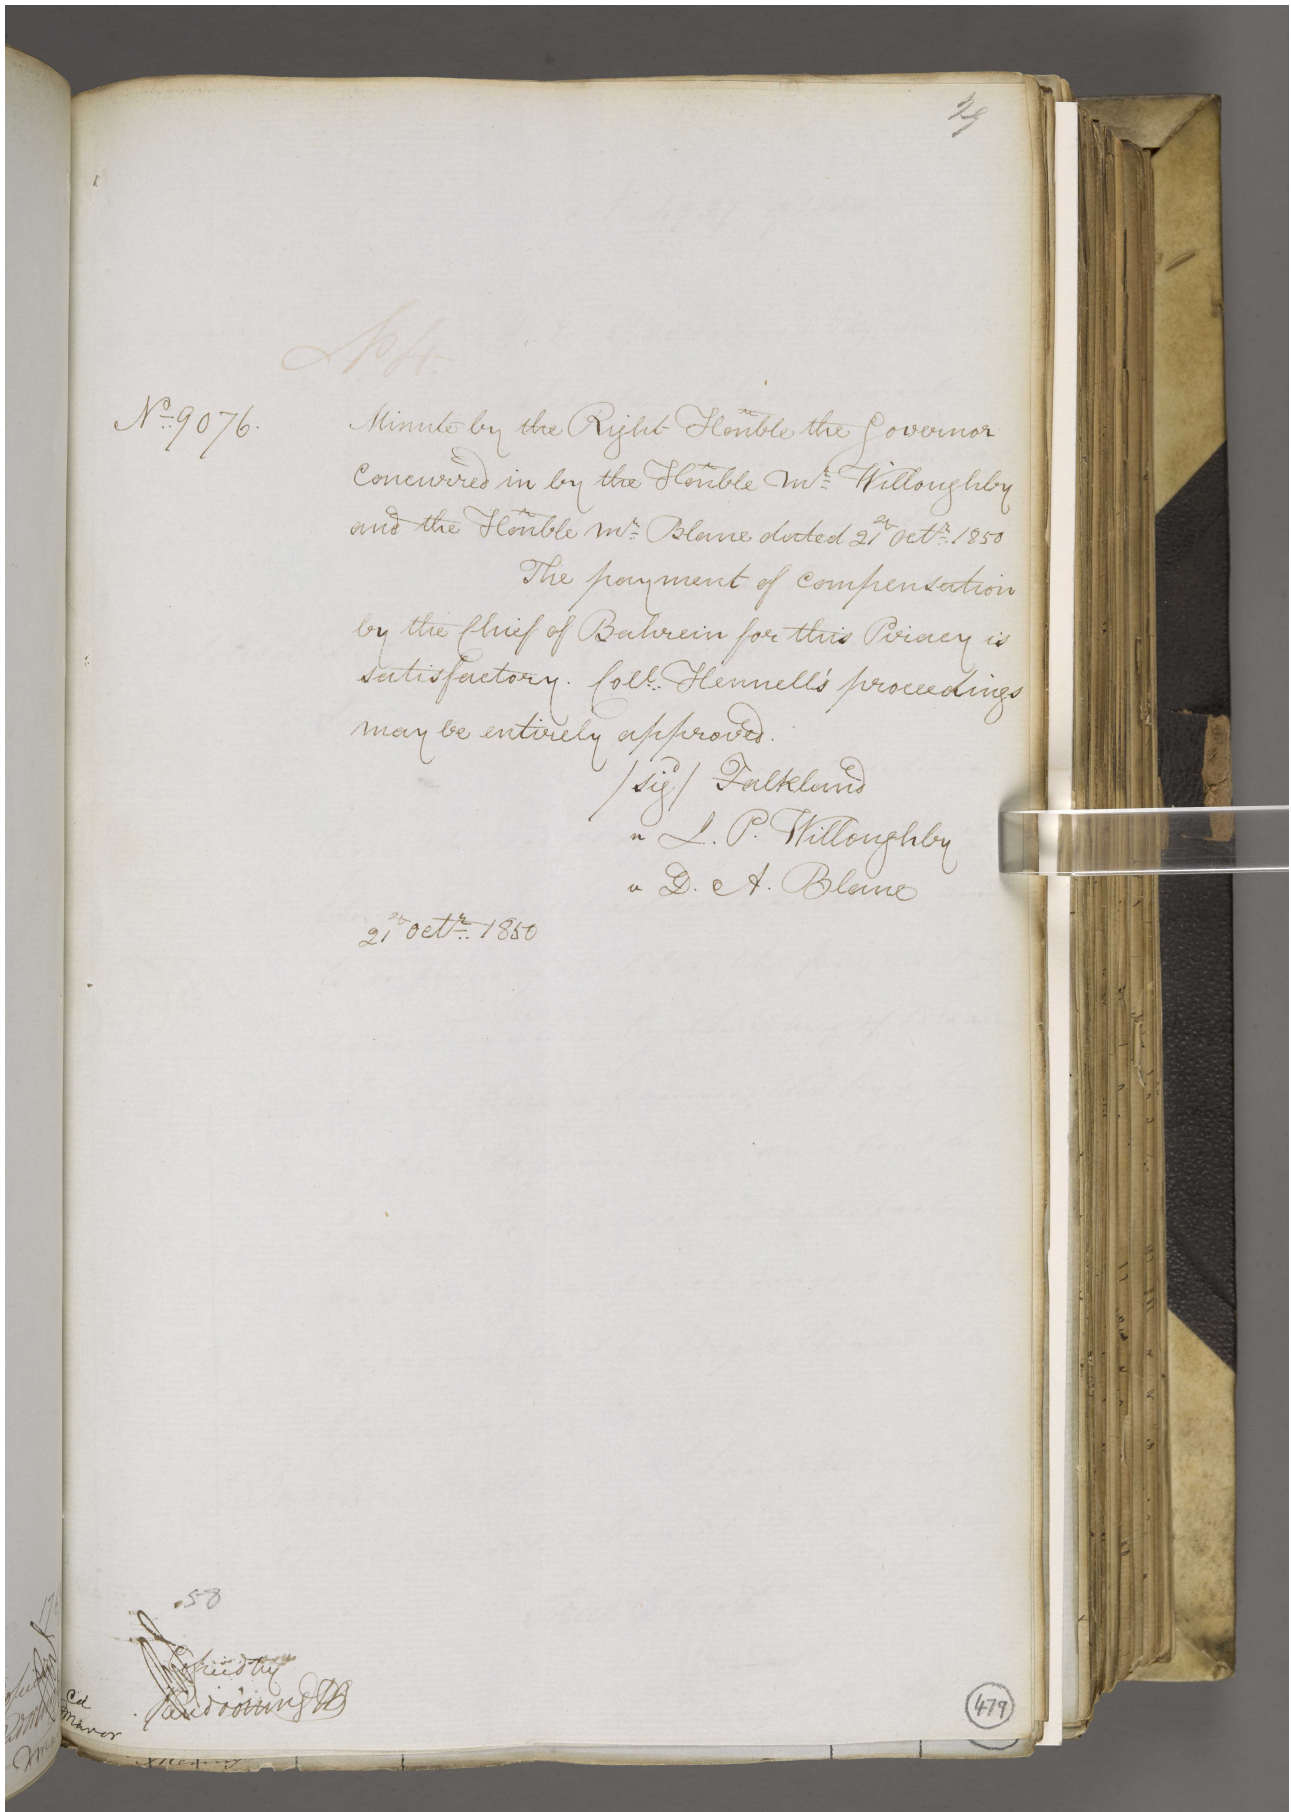 29
No 9076.
Minute by the Right Honble the Governor
Concurred in by the Honble Mr Willoughby
and the Honble Mr Blane dated 21st Octr 1850
The payment of compensation
by the Chief of Bahrein for this Piracy is
satisfactory. Coll. Hennell's proceedings
may be entirely approved.
/sigd/ Falkland
" J. P. Willoughby
" D. A. Blane
21st Octr 1850
58
Copied by
479